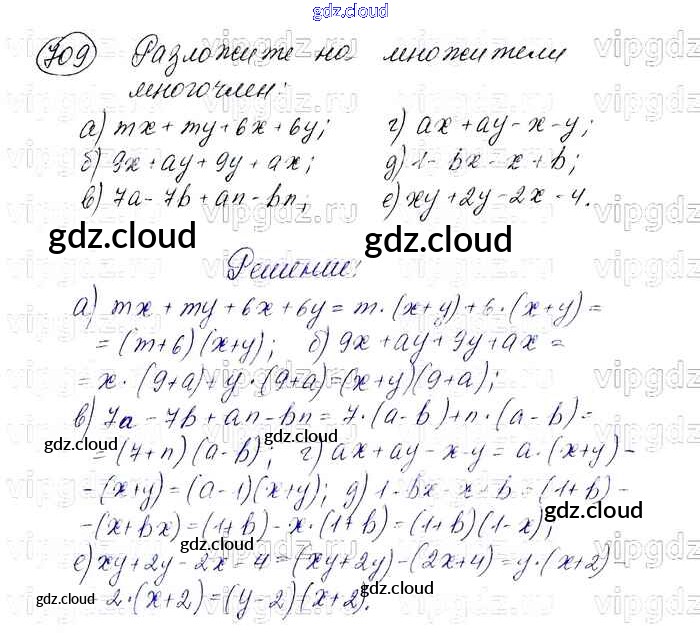 gdz.cloud
709 Разложите на множители
многочлен:
а) mx + my + 6x + 6y; г) ax + ay - x - y;
б) 9x + ay + 9y + ax; д) 1 - bx - x + b;
в) 7a - 7b + an - bn; е) xy + 2y - 2x - 4.
gdz.cloud gdz.cloud
Решение:
а) mx + my + 6x + 6y = m · (x+y) + 6 · (x+y) =
= (m+6)(x+y); б) 9x + ay + 9y + ax =
= x · (9+a) + y · (9+a) = (x+y)(9+a);
в) 7a - 7b + an - bn = 7 · (a-b) + n · (a-b) =
gdz.cloud gdz.cloud
= (7+n)(a-b); г) ax + ay - x - y = a · (x+y) -
- (x+y) = (a-1)(x+y); д) 1 - bx - x + b = (1+b) -
gdz.cloud
- (x+bx) = (1+b) - x · (1+b) = (1+b)(1-x);
gdz.cloud
е) xy + 2y - 2x - 4 = (xy+2y) - (2x+4) = y · (x+2) -
gdz.cloud gdz.cloud
- 2 · (x+2) = (y-2)(x+2).